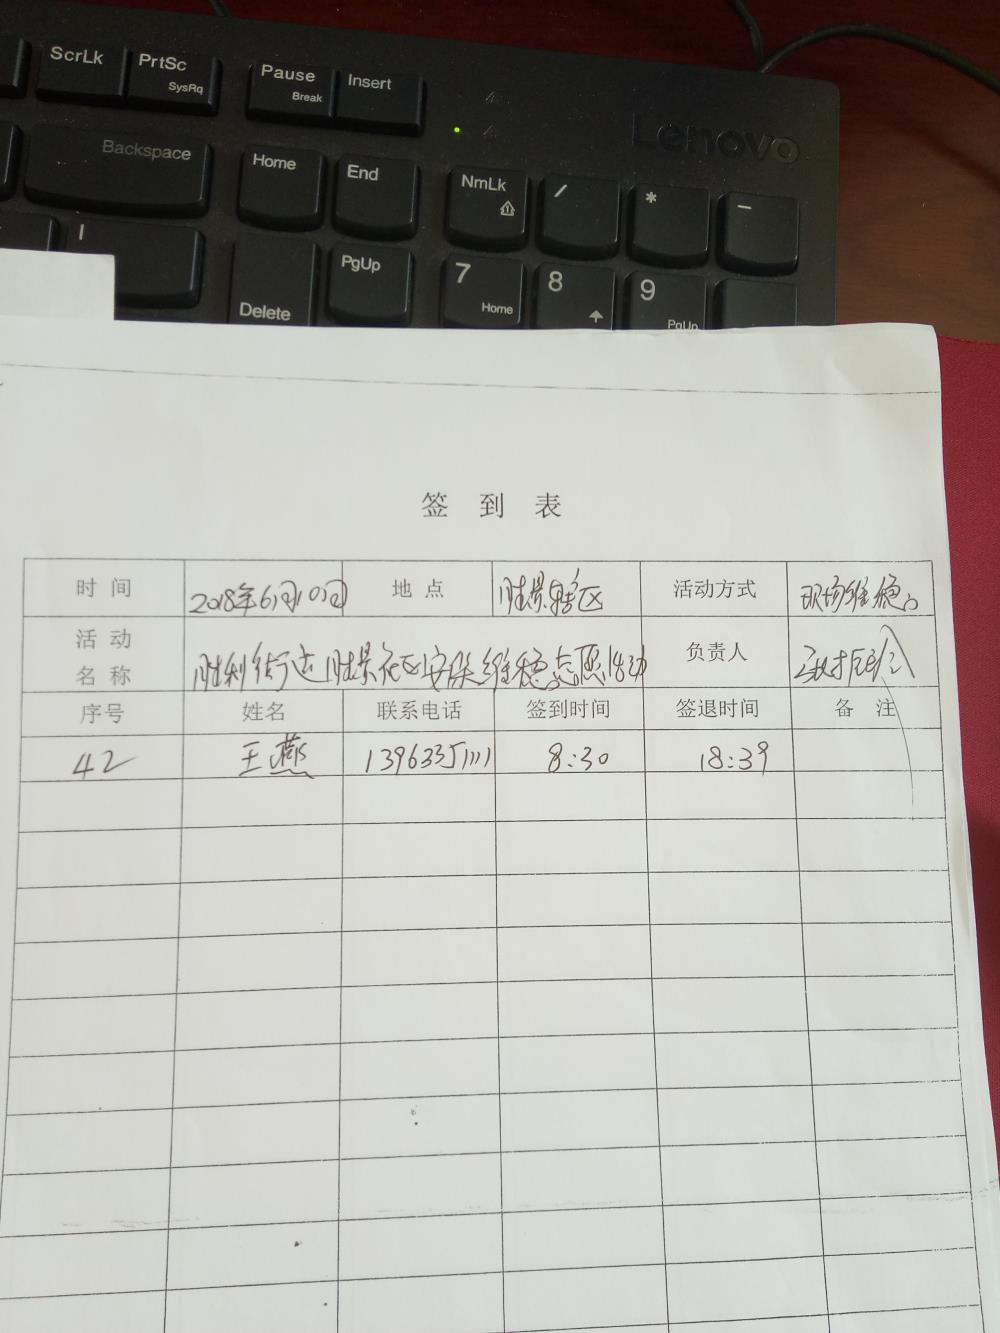 ScrLk PrtSc SysRq Pause Break Insert
Lenovo
Backspace Home End NmLk / * -
PgUp 7 Home 8 9 PgUp
Delete
签 到 表
时 间 2018年6月10日 地 点 胜景辖区 活动方式 现场维稳
活 动 名 称 胜利街道胜景社区安保维稳志愿活动 负责人
序号 姓名 联系电话 签到时间 签退时间 备 注
42 王燕 13963351111 8:30 18:39